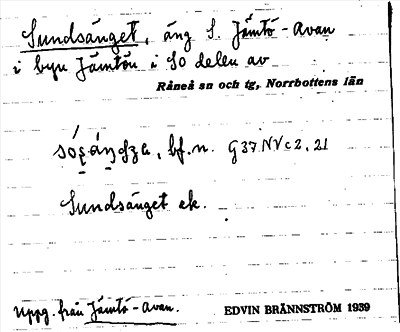 Sundsänget, äng S. Jämtö-Avan
i byn Jämtön i SO delen av
Råneå sn och tg, Norrbottens län
bf. n. G37 NV c 2, 21
Sundsänget ek.
Uppg. från Jämtö-Avan.
EDVIN BRÄNNSTRÖM 1939